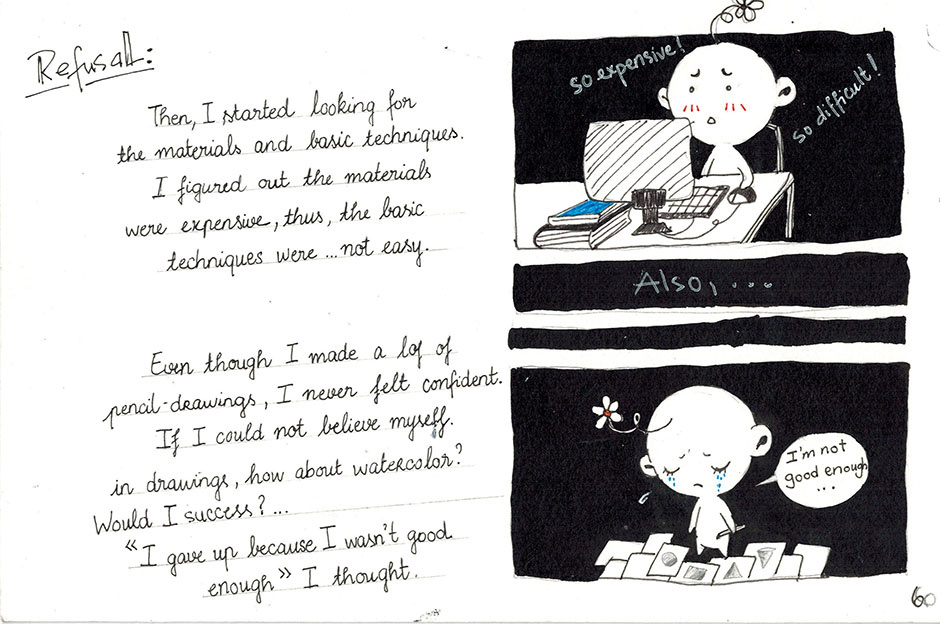 Refusal:
Then, I started looking for
the materials and basic techniques.
I figured out the materials
were expensive, thus, the basic
techniques were ... not easy.
Even though I made a lot of
pencil-drawings, I never felt confident.
If I could not believe myself.
in drawings, how about watercolor?
Would I success?...
"I gave up because I wasn't good
enough" I thought.
so expensive!
so difficult!
Also, ...
I'm not
good enough
...
60